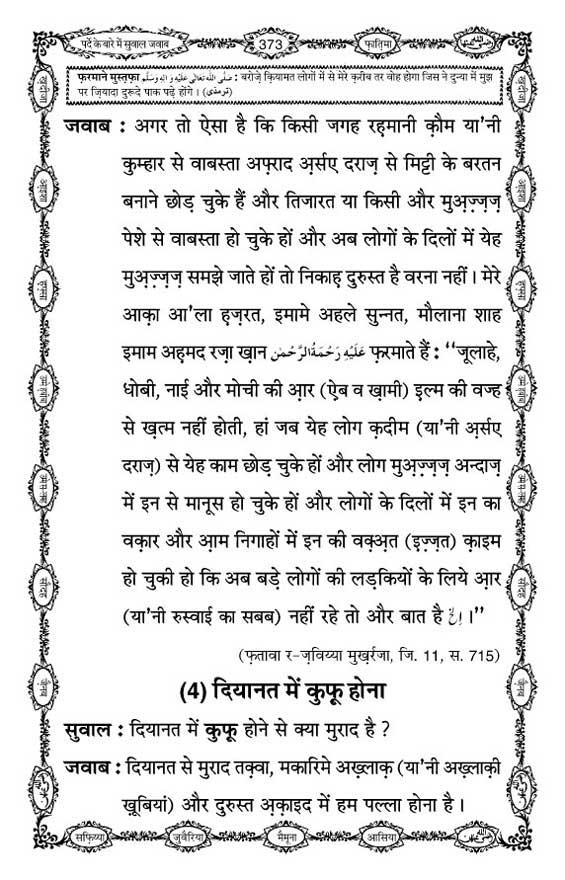 पर्दे के बारे में सुवाल जवाब
373
फ़ातिमा
फ़रमाने मुस्तफ़ा صَلَّى اللهُ تَعَالٰى عَلَيْهِ وَاٰلِهٖ وَسَلَّم : बरोज़े क़ियामत लोगों में से मेरे क़रीब तर वोह होगा जिस ने दुन्या में मुझ
पर ज़ियादा दुरूदे पाक पढ़े होंगे । (ترمذی)
जवाब : अगर तो ऐसा है कि किसी जगह रहमानी क़ौम या'नी
कुम्हार से वाबस्ता अफ़्राद अर्सए दराज़ से मिट्टी के बरतन
बनाने छोड़ चुके हैं और तिजारत या किसी और मुअ़ज़्ज़ज़
पेशे से वाबस्ता हो चुके हों और अब लोगों के दिलों में येह
मुअ़ज़्ज़ज़ समझे जाते हों तो निकाह़ दुरुस्त है वरना नहीं । मेरे
आक़ा आ'ला ह़ज़रत, इमामे अहले सुन्नत, मौलाना शाह
इमाम अह़मद रज़ा ख़ान عَلَيْهِ رَحْمَةُ الرَّحْمٰن फ़रमाते हैं : ‘‘जूलाहे,
धोबी, नाई और मोची की आ़र (ऐ़ब व ख़ामी) इ़ल्म की वज्ह
से ख़त्म नहीं होती, हां जब येह लोग क़दीम (या'नी अ़र्सए
दराज़) से येह काम छोड़ चुके हों और लोग मुअ़ज़्ज़ज़ अन्दाज़
में इन से मानूस हो चुके हों और लोगों के दिलों में इन का
वक़ार और आ़म निगाहों में इन की वक़्अ़त (इ़ज़्ज़त) क़ाइम
हो चुकी हो कि अब बड़े लोगों की लड़कियों के लिये आ़र
(या'नी रुस्वाई का सबब) नहीं रहे तो और बात है اِلخ ।’’
(फ़तावा र-ज़विय्या मुख़र्रजा, जि. 11, स. 715)
(4) दियानत में कुफ़ू होना
सुवाल : दियानत में कुफ़ू होने से क्या मुराद है ?
जवाब : दियानत से मुराद तक़्वा, मकारिमे अख़्लाक़ (या'नी अख़्लाक़ी
ख़ूबियां) और दुरुस्त अ़क़ाइद में हम पल्ला होना है ।
सफ़िय्या
जुवैरिया
मैमूना
आसिया